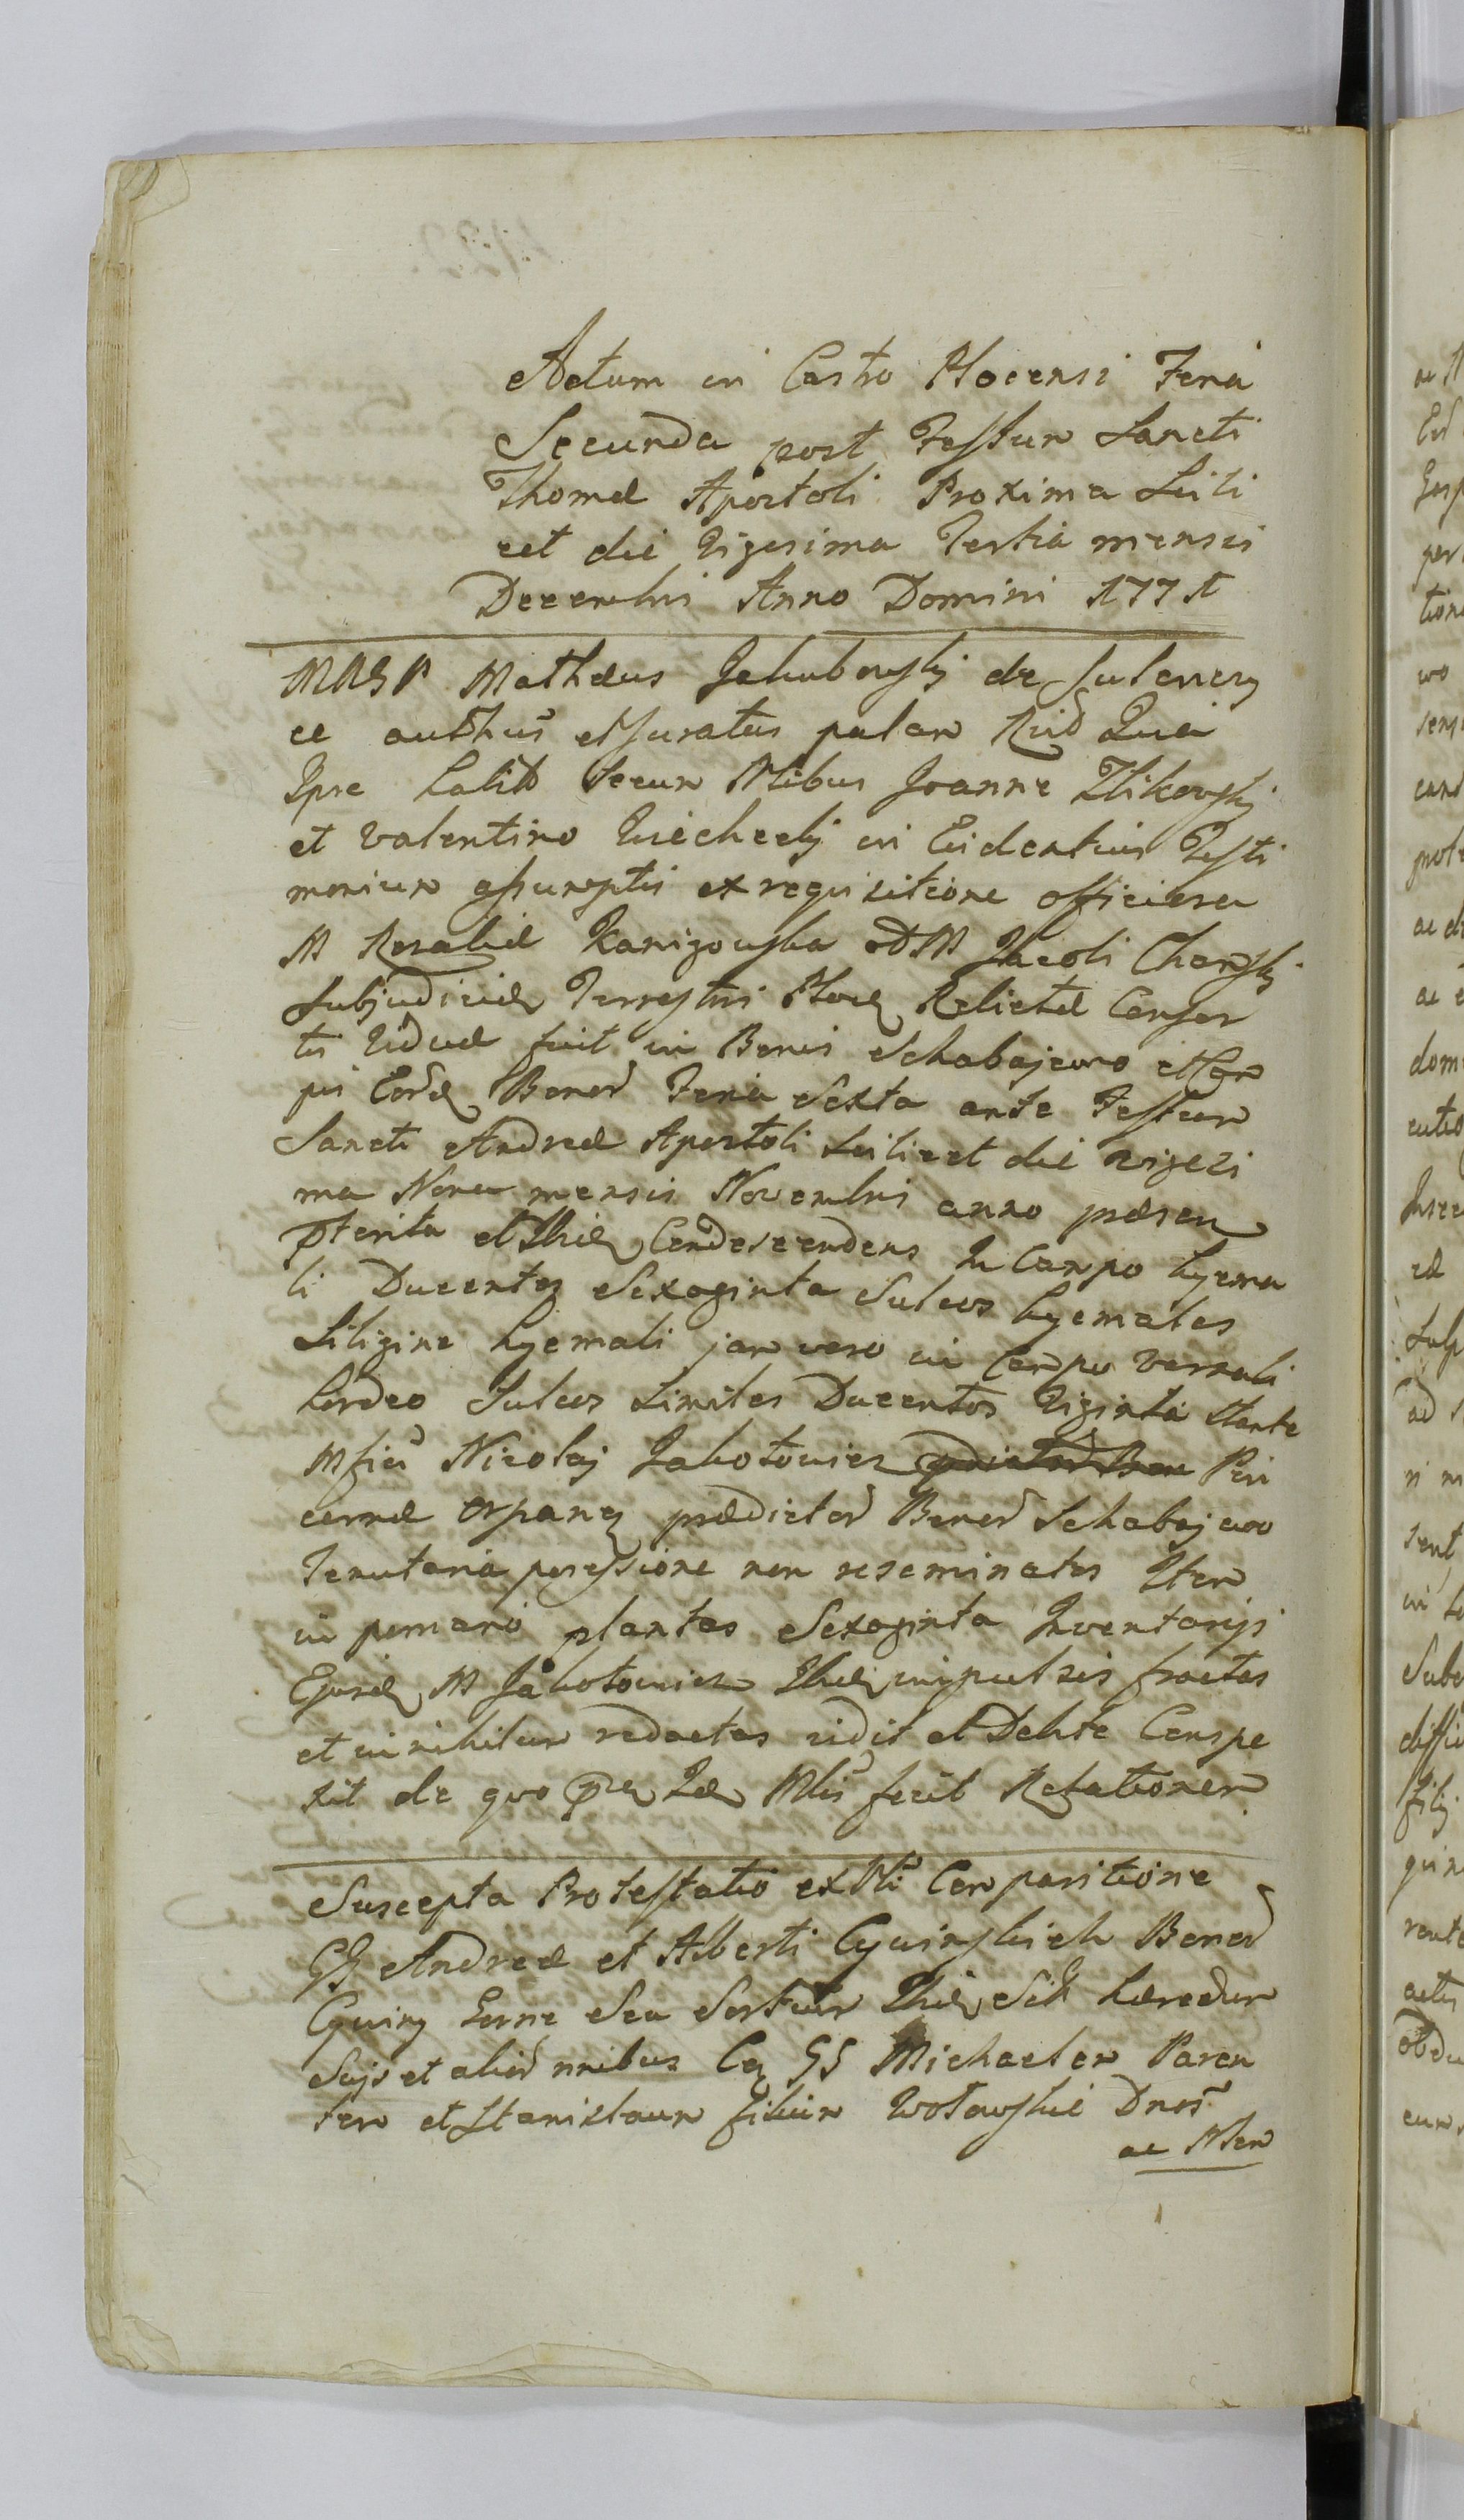 Actum in Castro Plocensi Feria
Secunda post Festum Sancti
Thomæ Apostoli Proxima Scili
cet die Vigesima Tertia mensis
Decembris Anno Domini 1771
Mathæus Jakubowski de Sulerzy
ce authus et Juratus palam Quia
Ipse habits secum Nlibus Joanne Zbikowski
et Valentino Wiechecki in Evidentius Testi
monium assumptis ex requisitione officiosa
M Rosaliæ Kanigowska M Jacobi Charski
Subjudicis Terrestris Ploc Relictæ Consor
tis Viduæ fuit in Bonis Schabajewo et Cam
pis Eord Bonor Feria Sexta ante Festum
Sancti Andreæ Apostoli Scilicet die vigesi
ma Nona mensis Novembris anno præsen
pterita et Ibid Condescendens In Campo hyema
li Ducentos Sexaginta Sulcos hyemales
Siligine hyemali jam vero in Campo vernali
hordeo Sulcos Similes Ducentos Viginti stante
Mfici Nicolaj Jabotowicz Pin
cernæ prædictor Bonor Schabajewo
Tenutaria possessione non reseminatos Item
in pomario plantas Sexaginta Inventarys
Ejusd M Jabotowicz Ibid impulsis fractas
et in nihilum redactas vidit et Debite Conspe
xit de quo Id Mtis fecit Relationem
Suscepta Protestatio ex Comparitione
GG Andreæ et Alberti Cywinskich Bonor
Cywiny Sorne Seu Sortium Ibid hæredum
Suis et alior nnibus Ca GG Michaelem Paren
tem et Stanislaum filium Wotowskie Dnos
ac